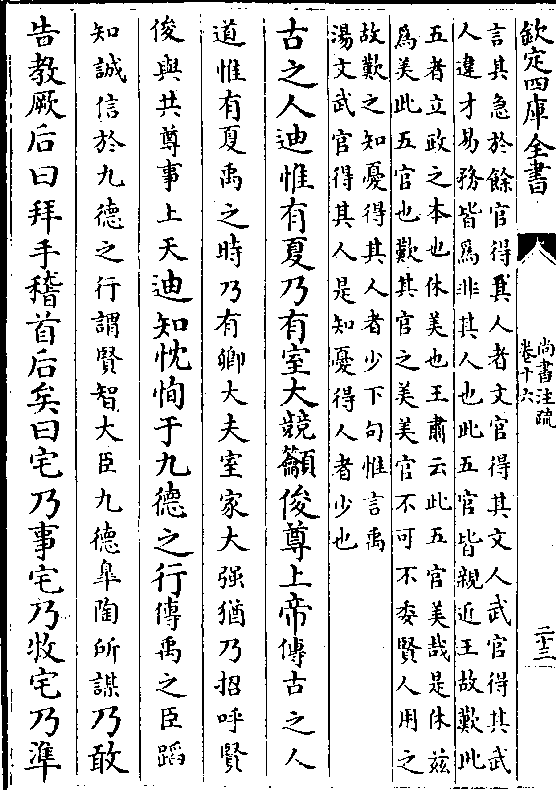 欽定四庫全書
尚書注疏
卷十六
二十三
言其急於餘官得其人者文官得其文人武官得其武
人違才易務皆爲非其人也此五官皆親近王故歎此
五者立政之本也休美也王肅云此五官美哉是休兹
爲美此五官也歎其官之美美官不可不委賢人用之
故歎之知憂得其人者少下句惟言禹
湯文武官得其人是知憂得人者少也
古之人迪惟有夏乃有室大競籲俊尊上帝傳古之人
道惟有夏禹之時乃有卿大夫室家大强猶乃招呼賢
俊與共尊事上天迪知忱恂于九德之行傳禹之臣蹈
知誠信於九德之行謂賢智大臣九德臯陶所謀乃敢
告教厥后曰拜手稽首后矣曰宅乃事宅乃牧宅乃準